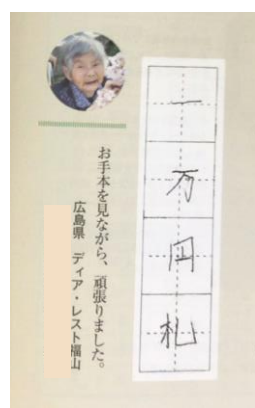 一万円札
お手本を見ながら、頑張りました。
広島県　ディア・レスト福山